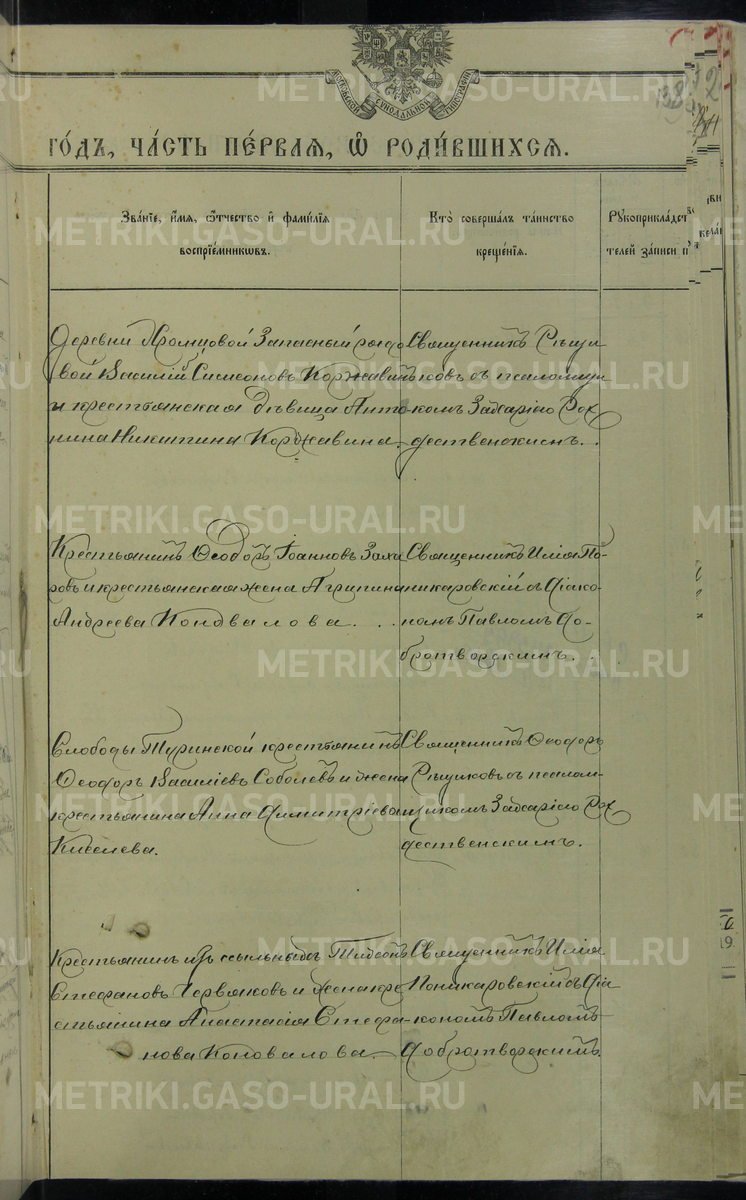 МОСКОВСКОЙ СѴНОДАЛЬНОЙ ТИПОГРАФІИ
ГО́ДЪ, ЧА́СТЬ ПЕ́РВАЯ, Ѡ҆ РОДИ́ВШИХСЯ.
Зва́нїе, и҆́мя, ѻ҆́тчество и҆ фами́лїя
воспрїе́мникωвъ.
Кто̀ соверша́лъ та́инство
креще́нїя.
Рꙋкоприкла́дст
телей за́писи п
Деревни Храмцовой Запасный рядо
вой Василій Симеоновъ Коржавинъ
и крестьянская дѣвица Анто
нина Никитина Коржавина.
Священникъ Рѣщи
ковъ съ псаломщи
комъ Захаріею Рож
дественскимъ.
Крестьянинъ Ѳеодоръ Іоанновъ Заха
ровъ и крестьянская жена Агрипина
Андреева Коновалова...
Священникъ Илія По-
никаровскій съ діако-
номъ Павломъ До-
бротворскимъ.
Слободы Туринской крестьянинъ
Ѳеодоръ Василіевъ Соболевъ и жена
крестьянина Анна Димитріева
Киселева.
Священникъ Ѳеодоръ
Рѣщиковъ съ псалом-
щикомъ Захаріею Рож
дественскимъ.
Крестьянинъ изъ ссыльныхъ
Стефановъ Червяковъ и жена кре
стьянина Анастасія Стефа-
нова Коновалова.
Священникъ Илія
Поникаровскій съ діа
кономъ Павломъ
Добротворскимъ.
METRIKI.GASO-URAL.RU